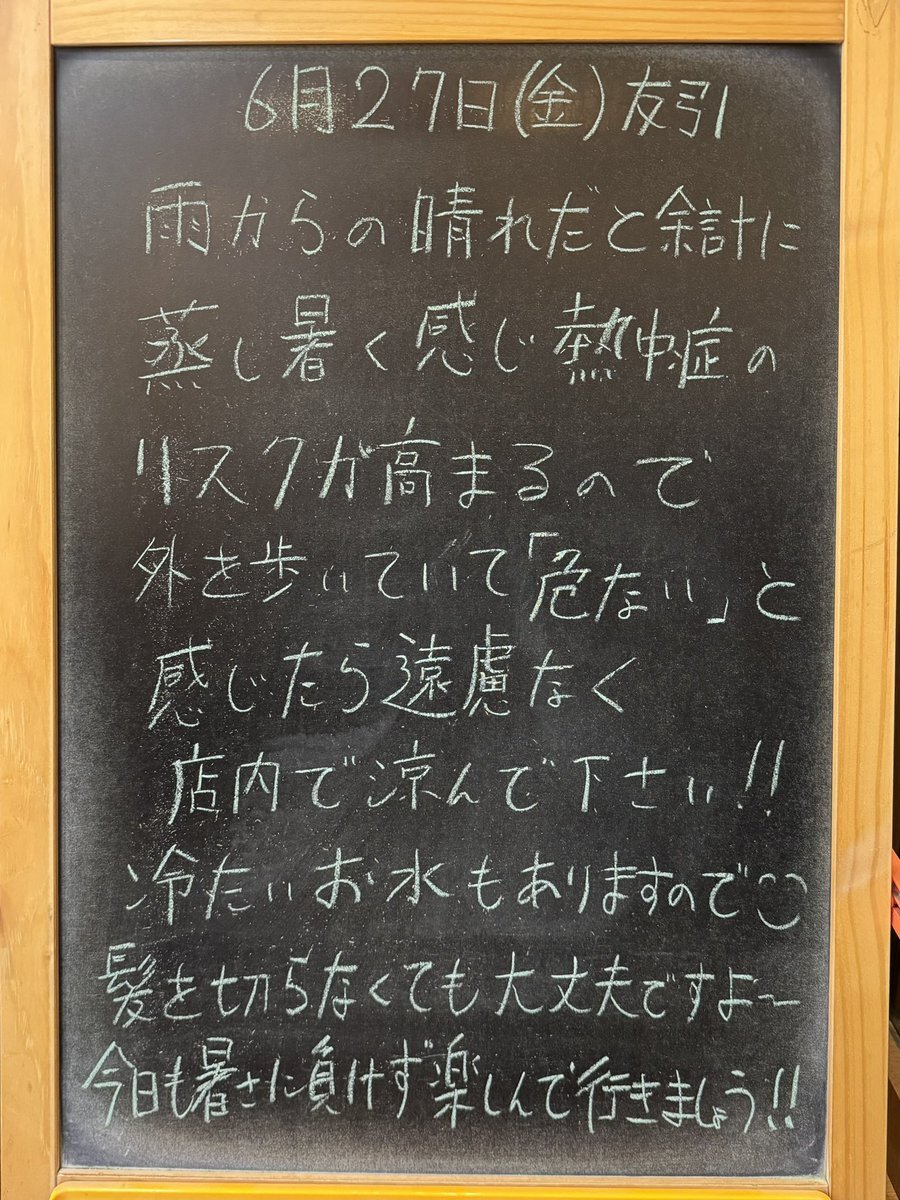 6月27日(金)友引
雨からの晴れだと余計に
蒸し暑く感じ熱中症の
リスクが高まるので
外を歩いていて「危ない」と
感じたら遠慮なく
店内で涼んで下さい!!
冷たいお水もありますので
髪を切らなくても大丈夫ですよ〜
今日も暑さに負けず楽しんで行きましょう!!